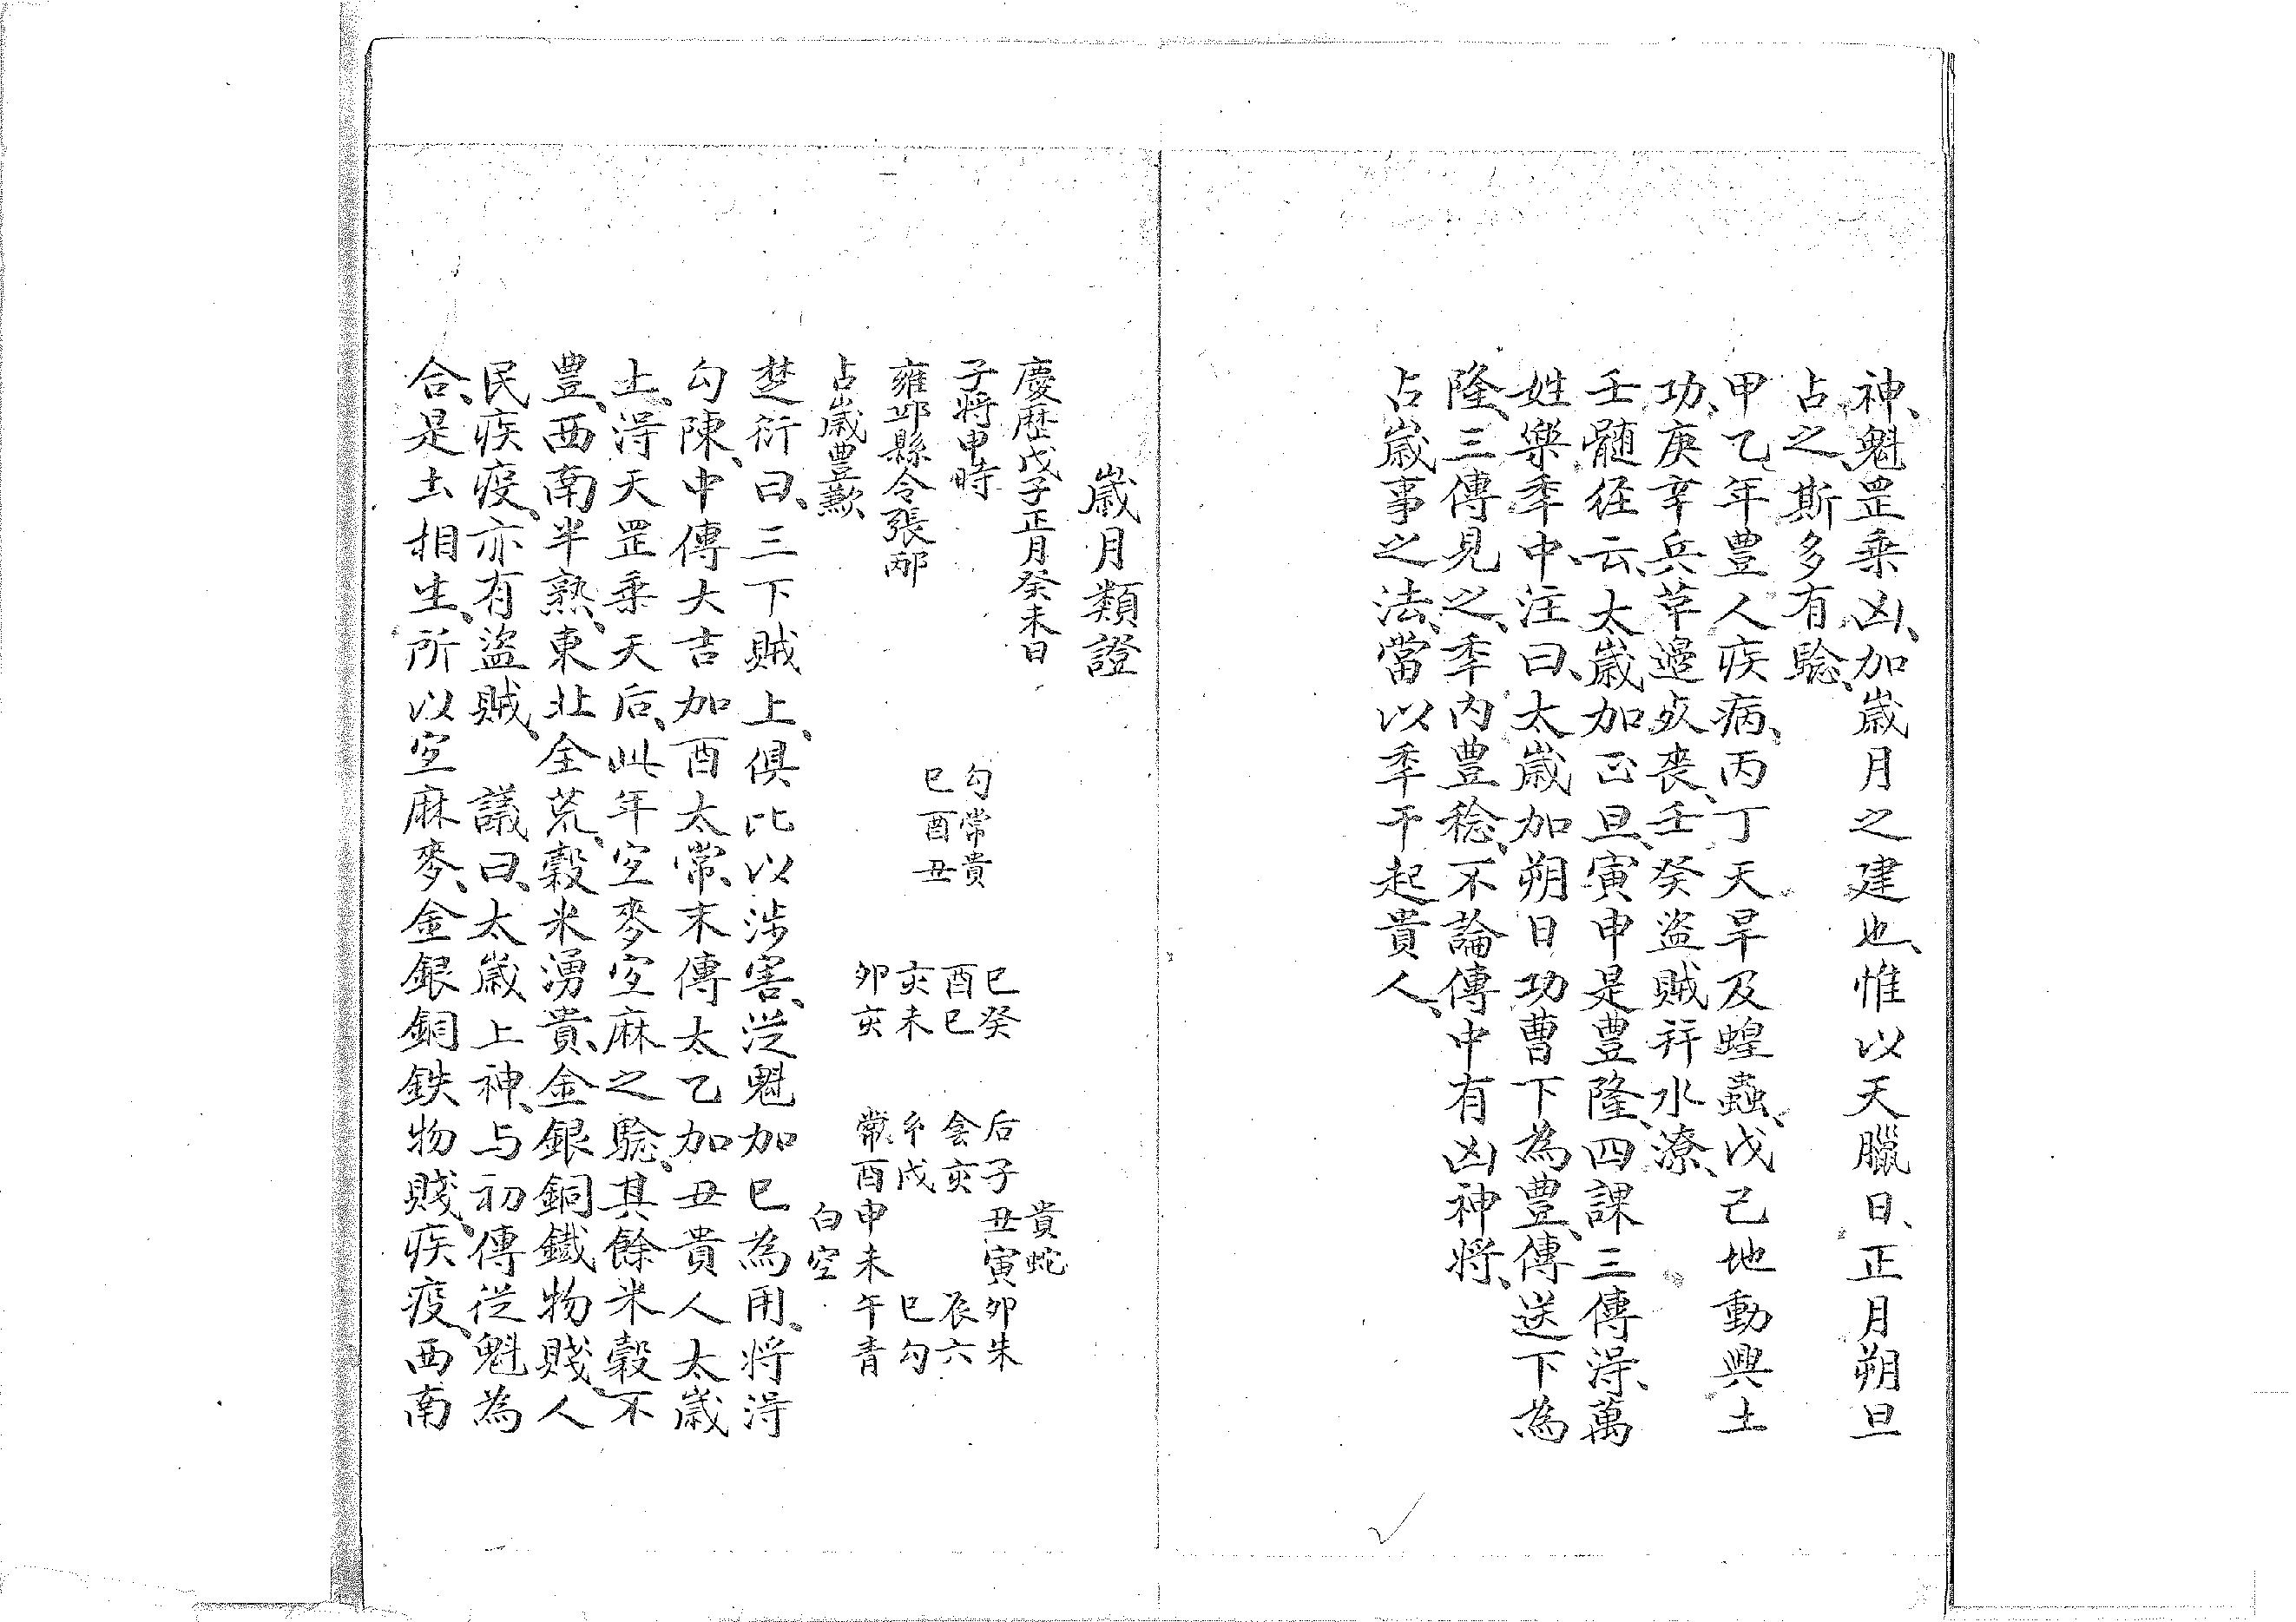 神、魁罡乘凶、加歲月之建也、惟以天臘日、正月朔旦
占之、斯多有驗、
甲乙年豊人疾病、丙丁天旱及蝗蟲、戊己地動興土
功、庚辛兵革邉㱠喪、壬癸盜賊幷水潦、
壬髄径云、太歲加正旦、寅申是豊隆、四課三傳淂、萬
姓樂年中、注曰、太歲加朔日功曹下為豊、傳送下為
隆、三傳見之、年内豊稔、不論傳中有凶神将、
占歲事之法、當以年干起貴人、
歲月類證
慶歴戊子正月癸未日
子将申時
雍邱縣令張邴
占歲豊歉
勾常貴
巳酉丑
巳癸
酉巳
亥未
卯亥
貴蛇
后子丑寅卯朱
会亥 辰六
糸戌 巳勾
常酉申未午青
白空
楚衍曰、三下賊上、俱比以涉害、㳂魁加巳為用、将淂
勾陳、中傳大吉加酉太常、末傳太乙加丑貴人太歲
上、淂天罡乘天后、此年宜麥宜麻之驗、其餘米穀不
豊、西南半熟、東北全荒、穀米湧貴、金銀銅鐵物賤、人
民疾疫、亦有盜賊、 議曰、太歲上神、与初傳㳂魁為
合、是土相生、所以宜麻麥、金銀銅鉄物賤、疾疫、西南